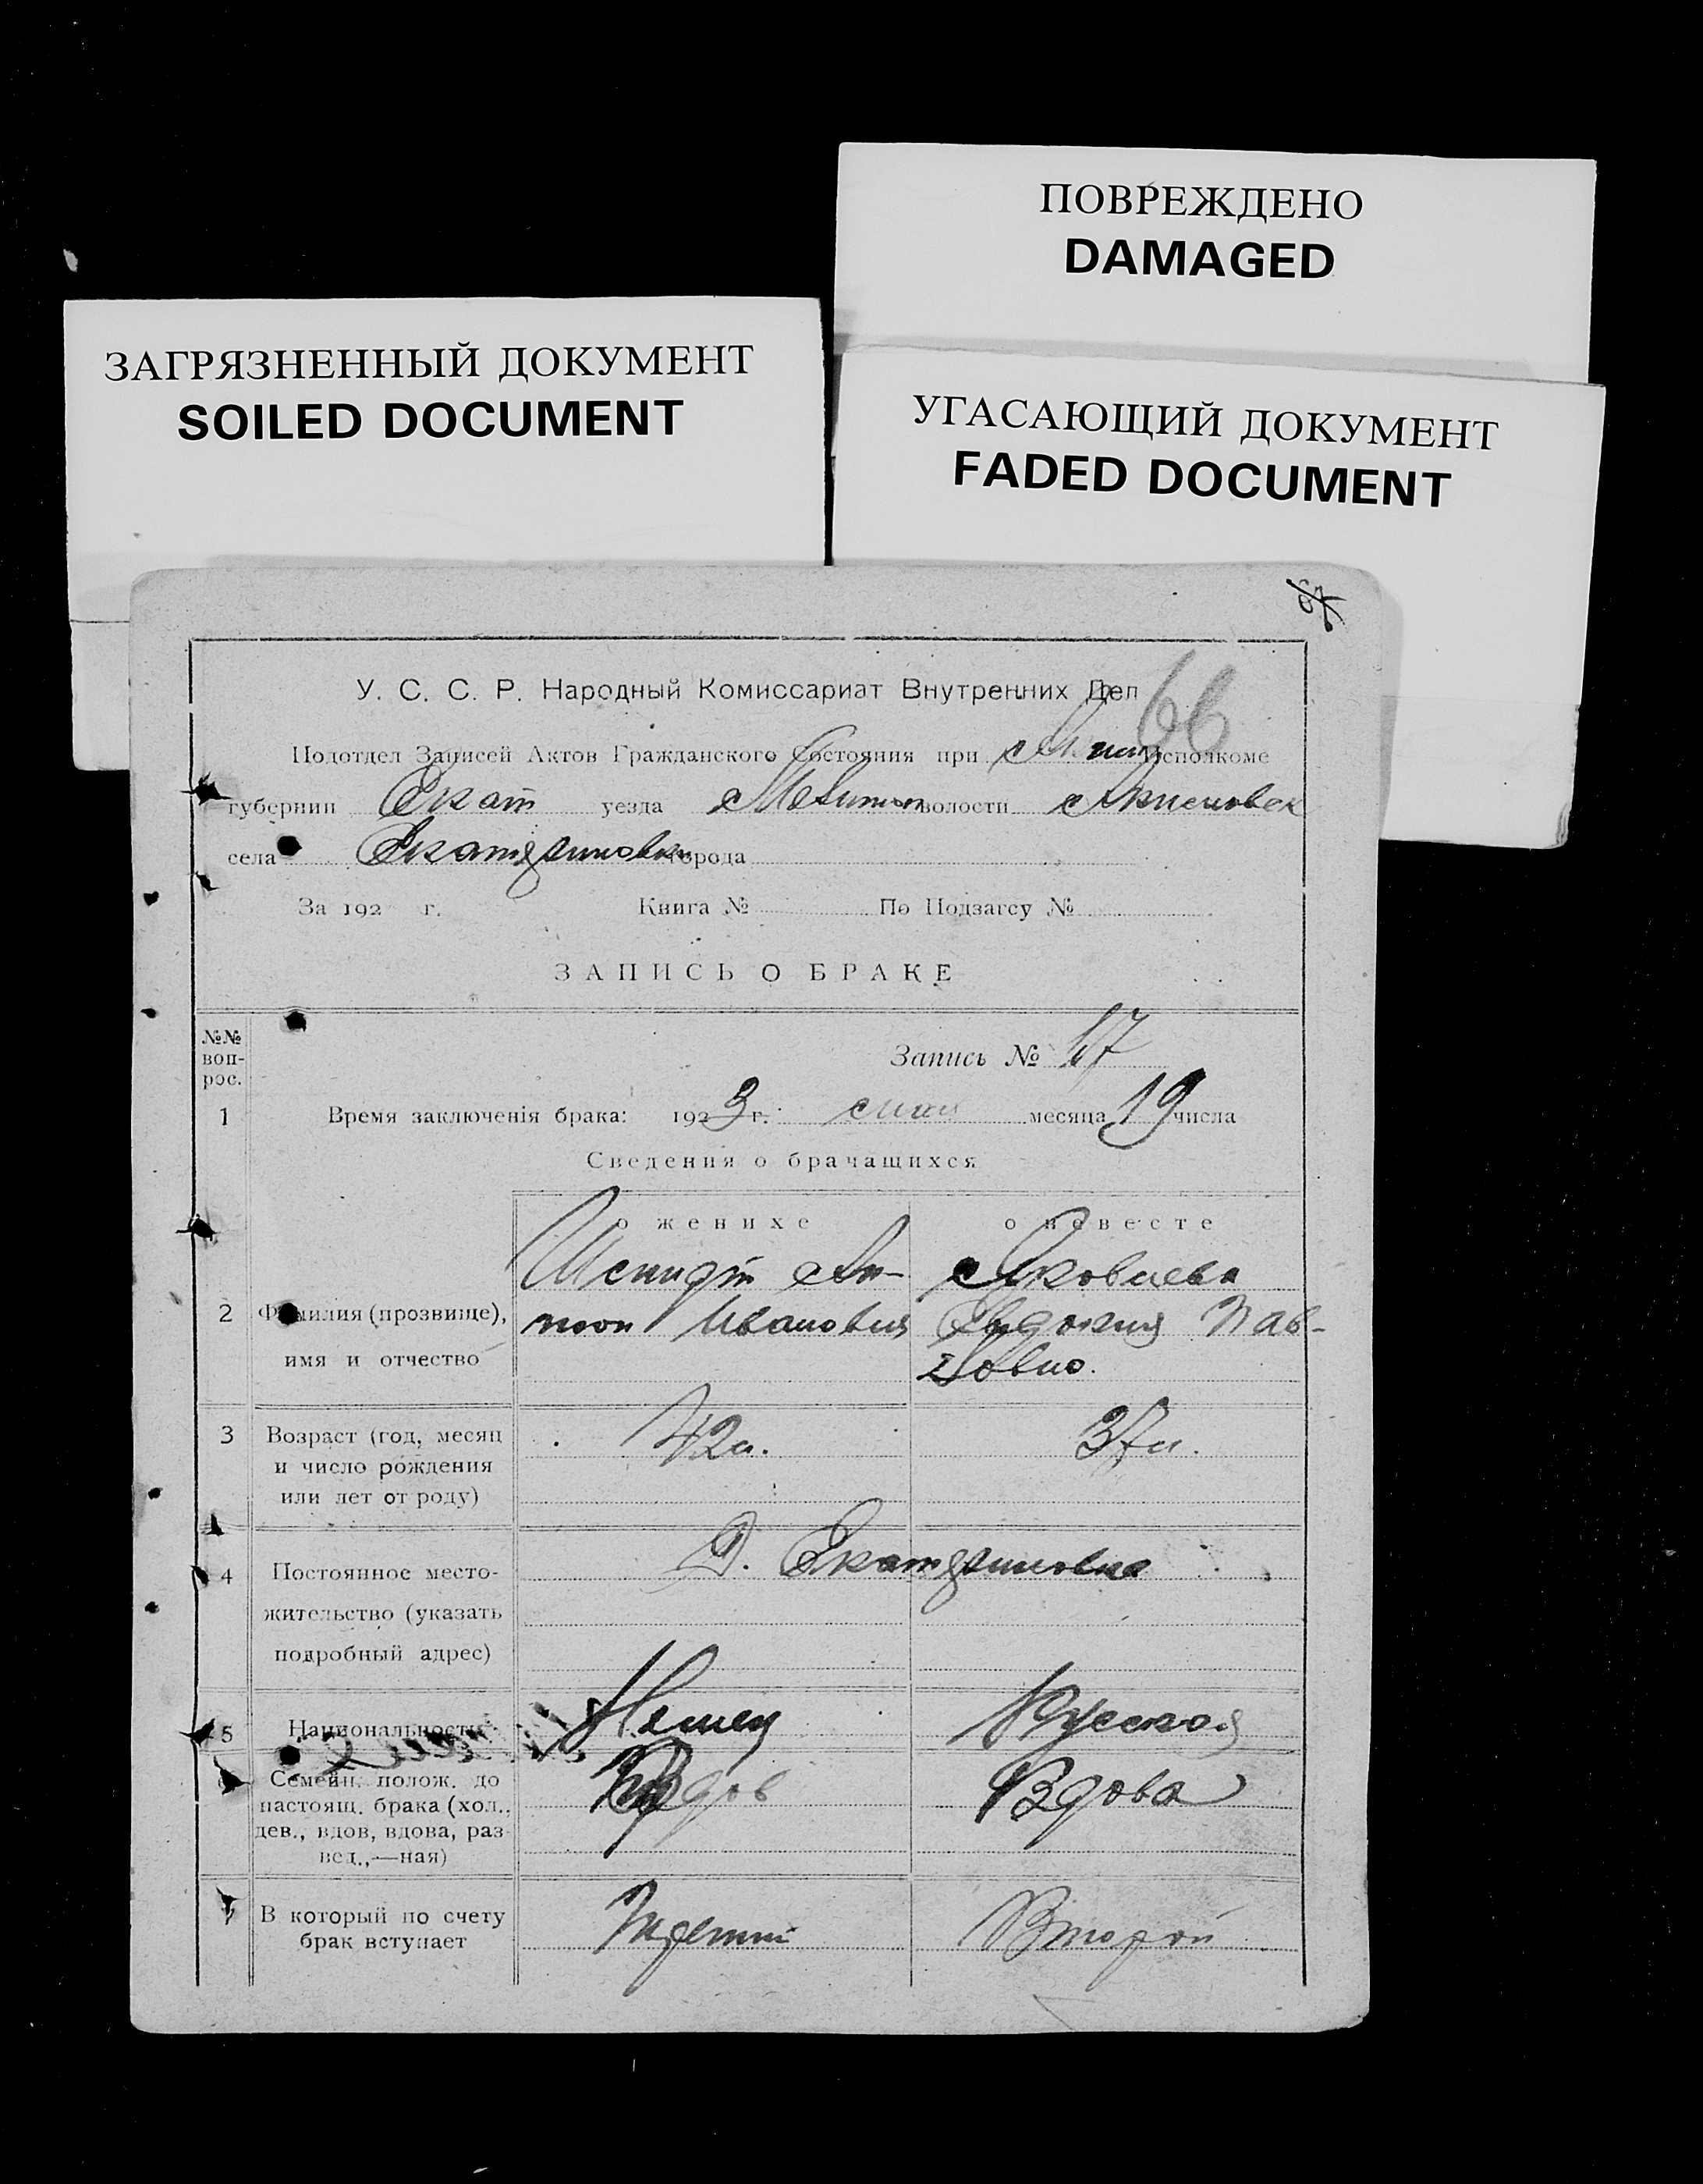 ПОВРЕЖДЕНО
DAMAGED
ЗАГРЯЗНЕННЫЙ ДОКУМЕНТ
SOILED DOCUMENT
УГАСАЮЩИЙ ДОКУМЕНТ
FADED DOCUMENT
66
У. С. С. Р. Народный Комиссариат Внутренних Дел
Подотдел Записей Актов Гражданского Состояния при исполкоме
губернии Екат уезда Мелитоп волости
села Екатериновки города
За 192 г. Книга № По Подзагсу №
ЗАПИСЬ О БРАКЕ
№№ воп- рос.
Запись № 17
1 Время заключенія брака: 1923 г. мая месяца 19 числа
Сведения о брачащихся
о женихе о невесте
Шмидт Ан- Яковлева
2 Фамилия (прозвище), тон Иванович Евдокия Пав-
имя и отчество ловна.
3 Возраст (год, месяц 42 л. 37 л.
и число рождения
или лет от роду)
Д. Екатериновка
4 Постоянное место-
жительство (указать
подробный адрес)
5 Национальность Немец Русская
Семейн. полож. до Вдов Вдова
настоящ. брака (хол.,
дев., вдов, вдова, раз-
вед.,—ная)
7 В который по счету Третий Второй
брак вступает